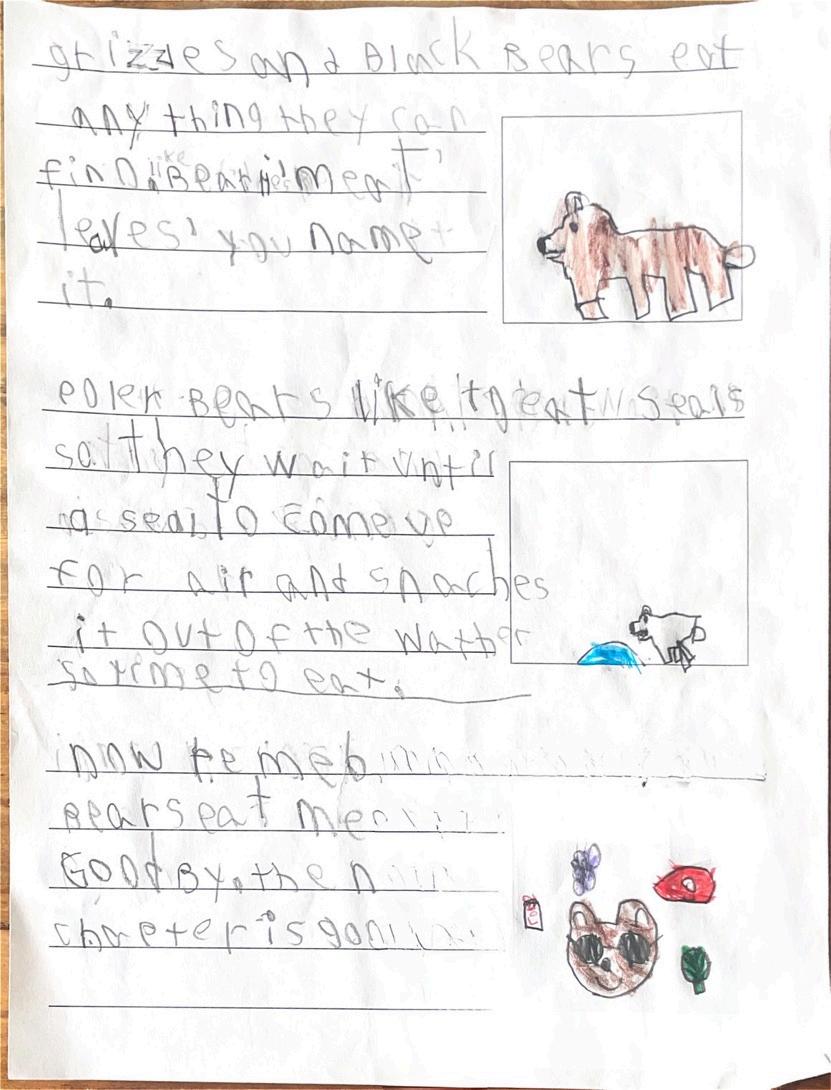 grizzes and Black Bears eat
any thing they can
find, like Bearies' meat'
leaves' you name
it.
poler Bears like to eat seals
so they wait until
a seal to come up
for air and snaches
it out of the wather
so time to eat.
now remeb
Bears eat me
Good By. the n
chapter is gon